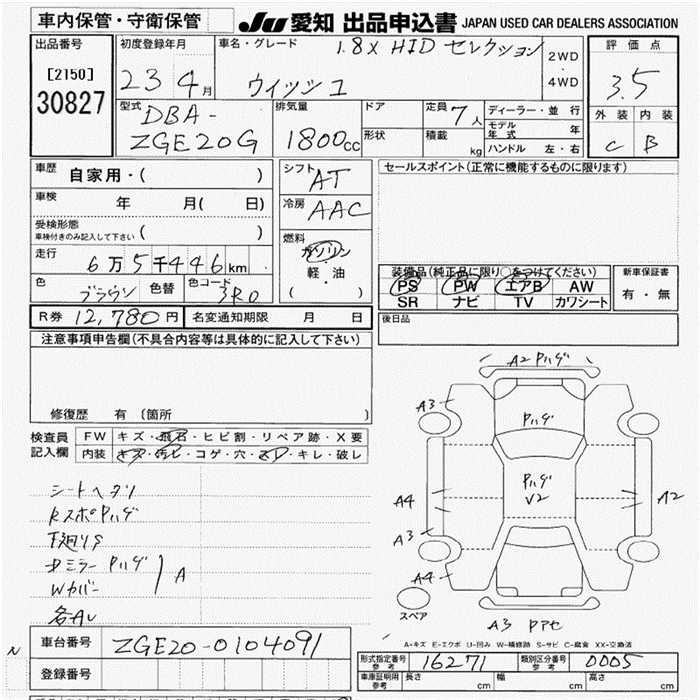 車内保管・守衛保管 JU 愛知 出品申込書 JAPAN USED CAR DEALERS ASSOCIATION
出品番号 初度登録年月 車名・グレード 1.8X HID セレクション 2WD・4WD 評価点
[2150] 30827 23 4月 ウイッシュ 3.5
型式 DBA-ZGE20G 排気量 1800cc ドア 定員 7人 ディーラー・並行 外装 内装
形状 積載 kg モデル年式 年 C B
ハンドル 左・右
車歴 自家用・( ) シフト AT セールスポイント(正常に機能するものに限ります)
車検 年 月( 日) 冷房 AAC
受検形態 車検付きのみ記入して下さい ( )
走行 6万5千446km 燃料 ガソリン 軽・油 ( )
装備品(純正品に限り○をつけてください) 新車保証書
色 ブラウン 色替 色コード 3R0 PS PW エアB AW 有・無
SR ナビ TV カワシート
R券 12,780円 名変通知期限 月 日 後日品
注意事項申告欄(不具合内容等は具体的に記入して下さい)
修復歴 有 [箇所 ]
検査員記入欄 FW キズ・飛石・ヒビ割・リペア跡・X要
内装 キズ・汚レ・コゲ・穴・スレ・キレ・破レ
シートヘタリ
RスポPハゲ
下廻りS
ドミラーPハゲ
Wカバー
A
名AU
A2 Pハゲ
A3
Pハゲ
Pハゲ
V2
A4
A2
A3
A4
スペア
A3 Pアセ
A-キズ E-エクボ U-凹み W-補修跡 S-サビ C-腐食 XX-交換済
N
車台番号 ZGE20-0104091
形式指定番号 参考 16271 類別区分番号 参考 0005
登録番号
車庫証明用 参考 長さ cm 幅 cm 高さ cm